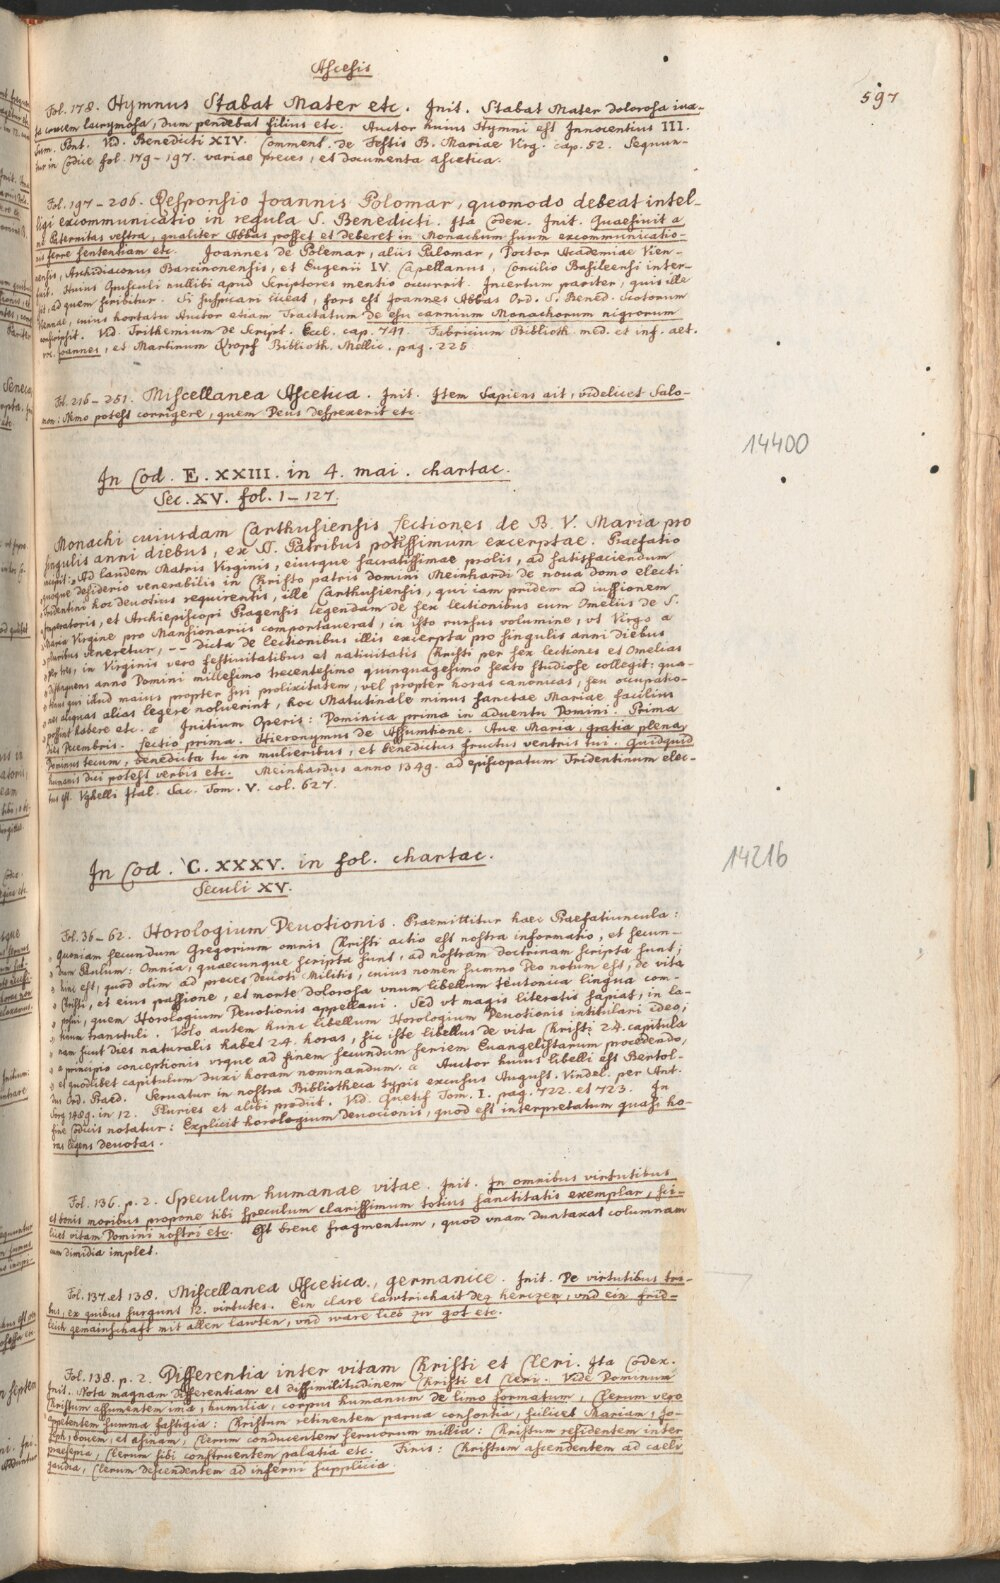 Ascesis
597
Fol. 178. Hymnus Stabat Mater etc. Init. Stabat Mater dolorosa iux-
ta crucem lacrymosa, dum pendebat filius etc. Auctor huius Hymni est Innocentius III.
Sum. Pont. Vid. Benedicti XIV. Comment. de Festis B. Mariae Virg. cap. 52. Sequun-
tur in Codice fol. 179-197. variae preces, et documenta ascetica.
Fol. 197-206. Responsio Joannis Polomar, quomodo debeat intel-
ligi excommunicatio in regula S. Benedicti. Ita Codex. Init. Quaesiuit a
me Paternitas vestra, qualiter Abbas posset et deberet in Monachum suum excommunicatio-
nis ferre sententiam etc. Joannes de Polemar, aliis Palomar, Doctor Academiae Vien-
nensis, Archidiaconus Barcinonensis, et Eugenii IV. Capellanus, Concilio Basileensi inter-
fuit. Huius Opusculi nullibi apud Scriptores mentio occurrit. Incertum pariter, quis ille
sit, ad quem scribitur. Si suspicari liceat, fors est Joannes Abbas Ord. S. Bened. Scotorum
Viennae, cuius hortatu Auctor etiam Tractatum de esu carnium Monachorum nigrorum
conscripsit. Vid. Trithemium de Script. Eccl. cap. 741. Fabricium Biblioth. med. et inf. aet.
voc. Joannes, et Martinum Kropf Biblioth. Mellic. pag. 225.
Fol. 216-251. Miscellanea Ascetica. Init. Item Sapiens ait, videlicet Salo-
mon: Nemo potest corrigere, quem Deus despexerit etc.
14400
In Cod. E. XXIII. in 4. mai. chartac.
Sec. XV. fol. 1-127.
Monachi cuiusdam Carthusiensis Lectiones de B. V. Maria pro
singulis anni diebus, ex S. Patribus potissimum excerptae. Praefatio
incipit: „Ad laudem Matris Virginis, eiusque sacratissimae prolis, ad satisfaciendum
„quoque desiderio venerabilis in Christo patris domini Meinhardi de noua domo electi
„Tridentini hoc deuotius requirentis, ille Carthusiensis, qui iam pridem ad iussionem
„Imperatoris, et Archiepiscopi Pragensis legendam de sex lectionibus cum Omeliis de S.
„Maria Virgine pro Mansionariis comportauerat, in isto rursus volumine, vt Virgo a
„pluribus veneretur, -- dicta de lectionibus illis excerpta pro singulis anni diebus
„per tres, in Virginis vero festiuitatibus et natiuitatis Christi per sex lectiones et Omelias
„distinguens anno Domini millesimo trecentesimo quinquagesimo sexto studiose collegit: qua-
„tinus qui illud maius propter sui prolixitatem, vel propter horas canonicas, seu occupatio-
„nes aliquas alias legere noluerint, hoc Matutinale minus sanctae Mariae facilius
„possint habere etc. „ Initium Operis: Dominica prima in aduentu Domini. Prima
dies Decembris. Lectio prima. Hieronymus de Assumtione. Aue Maria, gratia plena,
Dominus tecum, benedicta tu in mulieribus, et benedictus fructus ventris tui. Quidquid
humanis dici potest verbis etc. Meinhardus anno 1349. ad episcopatum Tridentinum elec-
tus est. Vghelli Ital. Sac. Tom. V. col. 627.
14216
In Cod. C. XXXV. in fol. chartac.
Seculi XV.
Fol. 36-62. Horologium Deuotionis. Praemittitur haec Praefatiuncula:
„Quoniam secundum Gregorium omnis Christi actio est nostra informatio, et secun-
„dum Paulum: Omnia, quaecunque scripta sunt, ad nostram doctrinam scripta sunt;
„hinc est, quod olim ad preces deuoti Militis, cuius nomen summo Deo notum est, de vita
„Christi, et eius passione, et morte dolorosa vnum libellum teutonica lingua com-
„posui, quem Horologium Deuotionis appellaui. Sed vt magis literatis sapiat, in la-
„tinum transtuli. Volo autem hunc libellum Horologium Deuotionis intitulari ideo;
„nam sicut dies naturalis habet 24. horas, sic iste libellus de vita Christi 24. capitula
„a principio conceptionis vsque ad finem secundum seriem Euangelistarum procedendo,
„et quodlibet capitulum duxi horam nominandum. „ Auctor huius libelli est Bertol-
dus Ord. Praed. Seruatur in nostra Bibliotheca typis excusus August. Vindel. per Ant.
Sorg 1489. in 12. Pluries et alibi prodiit. Vid. Quetif Tom. I. pag. 722. et 723. In
fine Codicis notatur: Explicit horologium Deuocionis, quod est interpretatum quasi ho-
ras legens deuotas.
Fol. 136. p. 2. Speculum humanae vitae. Init. In omnibus virtutibus
et bonis moribus propone tibi speculum clarissimum totius sanctitatis exemplar, sci-
licet vitam Domini nostri etc. Est breue fragmentum, quod vnam duntaxat columnam
cum dimidia implet.
Fol. 137. et 138. Miscellanea Ascetica, germanice. Init. De virtutibus tri-
bus, ex quibus surgunt 12. virtutes. Ein clare lawtrichait dez herczen, vnd ein frid-
lich gemainschaft mit allen lawten, vnd ware lieb zu got etc.
Fol. 138. p. 2. Differentia inter vitam Christi et Cleri. Ita Codex.
Init. Nota magnam differentiam et dissimilitudinem Christi et Cleri. Vide Dominum
Christum assumentem ima, humilia, corpus humanum de limo formatum, Clerum vero
appetentem summa fastigia: Christum retinentem parua consortia, scilicet Mariam, Jo-
seph, bouem, et asinam, Clerum conducentem seruorum millia: Christum residentem inter
praesepia, Clerum sibi construentem palatia etc. Finis: Christum ascendentem ad caeli
gaudia, Clerum descendentem ad inferni supplicia.